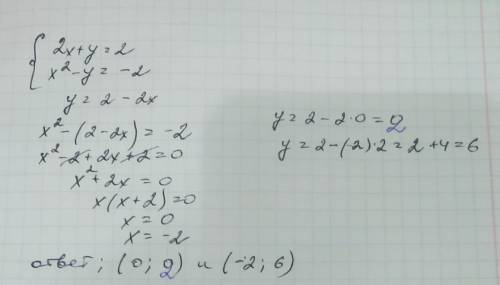 { 2x+y=2
x²-y=-2
y=2-2x
x²-(2-2x)=-2
x²-2+2x+2=0
x²+2x=0
x(x+2)=0
x=0
x=-2
y=2-2·0=2
y=2-(-2)·2=2+4=6
ответ; (0; 2) и (-2; 6)